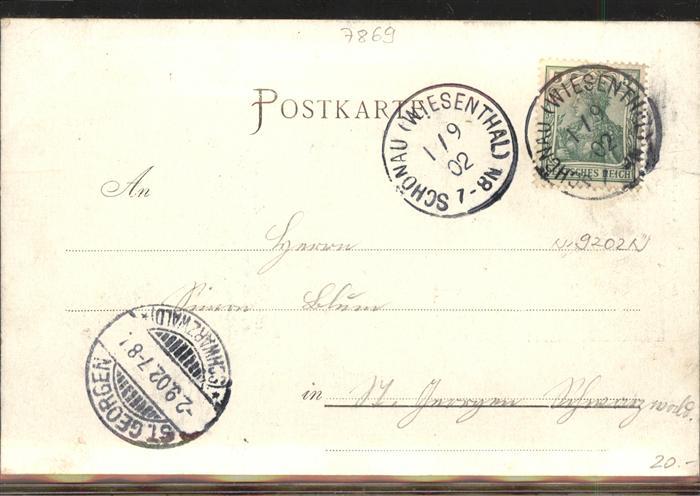 7869
POSTKARTE
SCHÖNAU (WIESENTHAL)
1/9
02
7-8N
SCHÖNAU (WIESENTHAL)
1/9
02
DEUTSCHES REICH
An
Herrn
9202N
Simon Blum
ST. GEORGEN
(SCHWARZWALD)
-2.9.02.7-8
in St. Georgen Schwarzwald
20.-